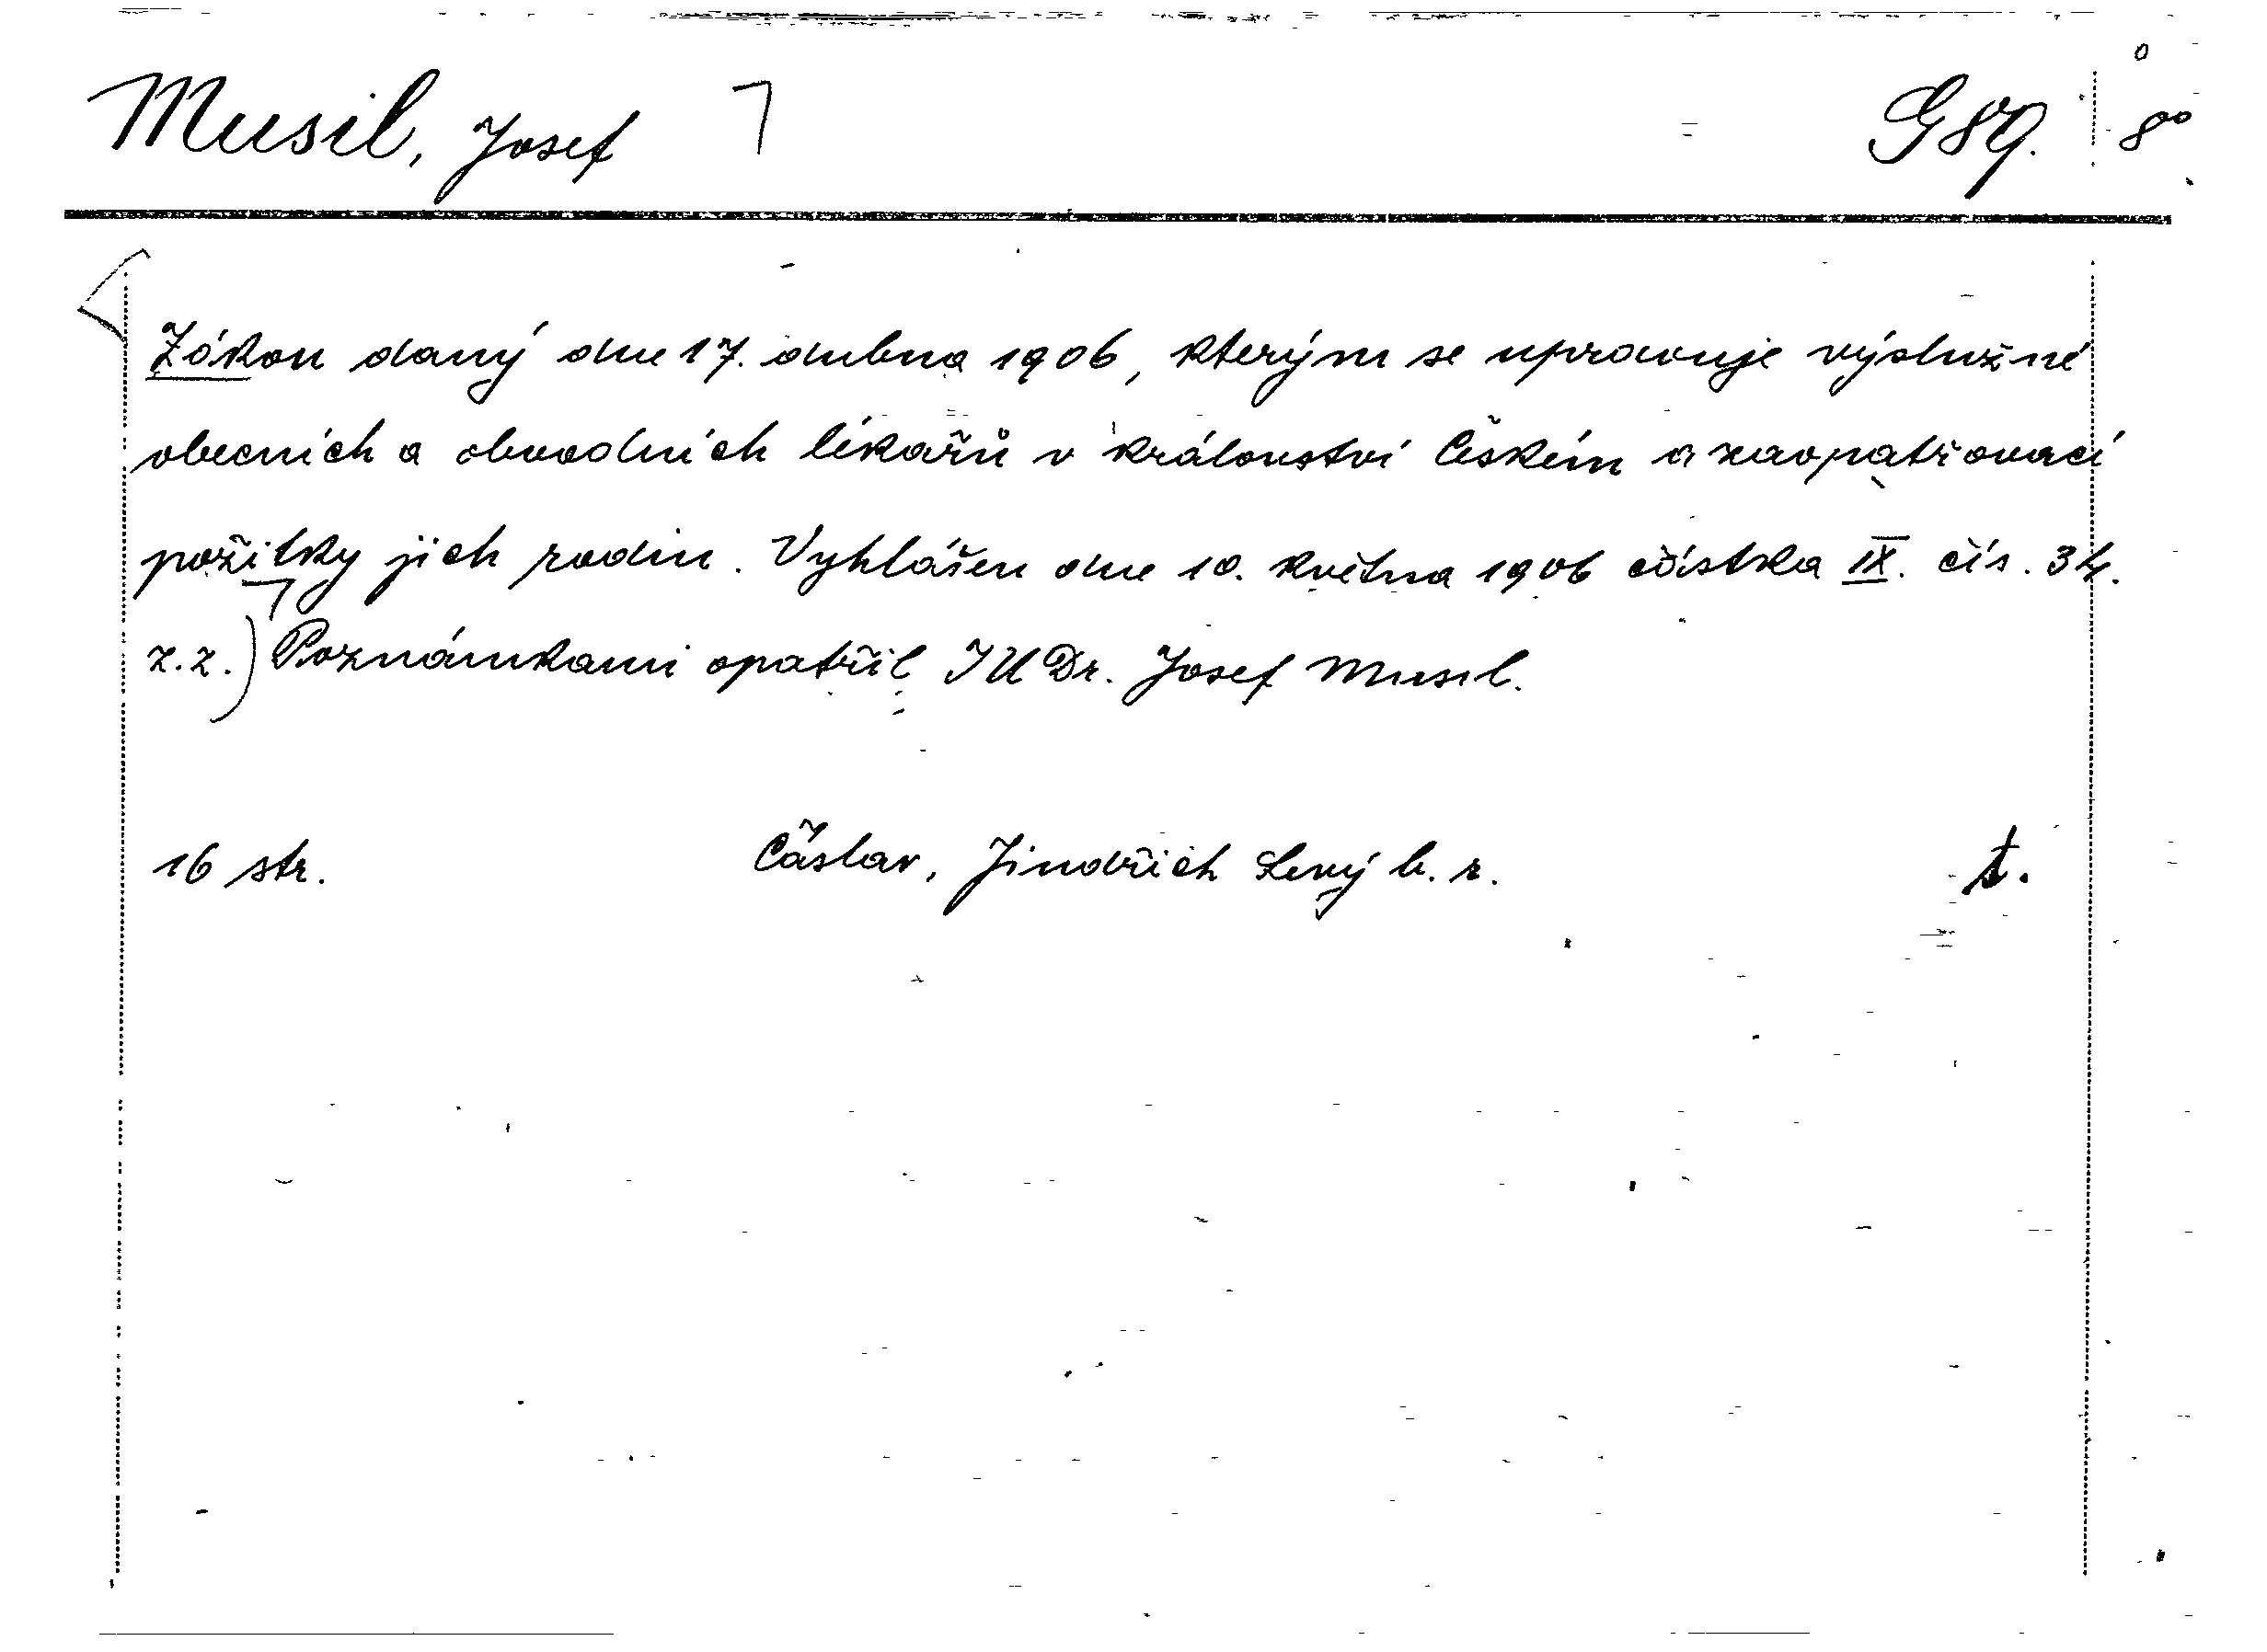 Musil, Josef G 89. 8°
Zákon daný dne 17. dubna 1906, kterým se upravuje výslužné
obecních a obvodních lékařů v království Českém a zaopatřovací
požitky jich rodin. Vyhlášen dne 10. května 1906 částka IX. čís. 34.
z.z.) Poznámkami opatřil JUDr. Josef Musil.
16 str. Čáslav, Jindřich Levý b. r. t.